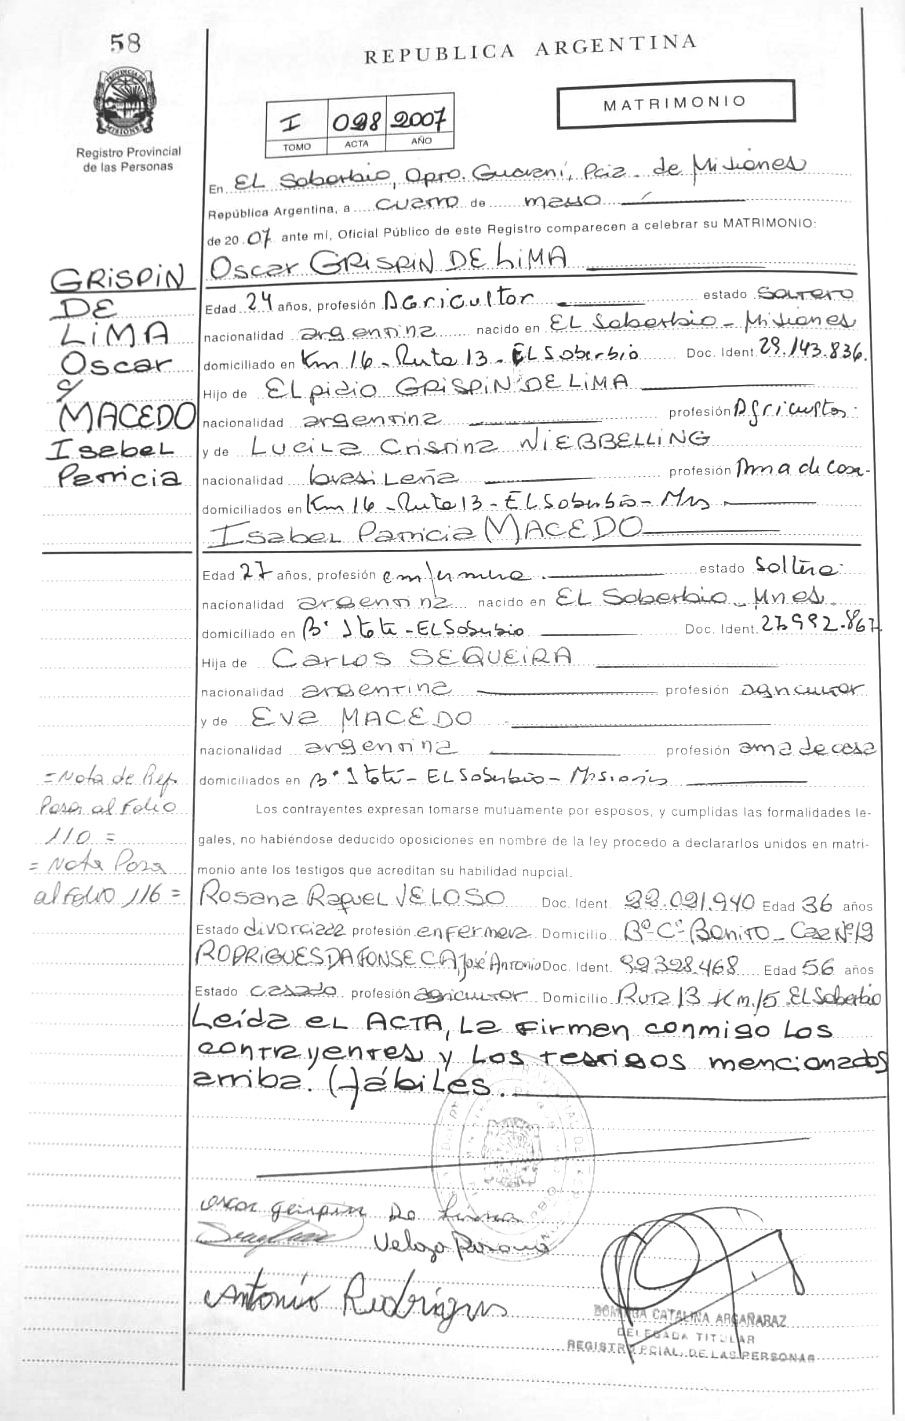 58
REPUBLICA ARGENTINA
MATRIMONIO
I 098 2007
TOMO ACTA AÑO
Registro Provincial
de las Personas
En EL Soberbio, Dpro. Guaraní, Pcia. de Misiones
República Argentina, a cuatro de mayo
de 2007 ante mí, Oficial Público de este Registro comparecen a celebrar su MATRIMONIO:
Oscar GRISPIN DE LIMA
GRISPIN
DE
LIMA
Oscar
y
MACEDO
Isabel
Patricia
Edad 24 años, profesión Agricultor estado Soltero
nacionalidad argentina nacido en EL Soberbio - Misiones
domiciliado en Km 16 - Ruta 13 - EL Soberbio Doc. Ident. 29.143.836.
Hijo de ELpidio GRISPIN DE LIMA
nacionalidad argentina profesión Agricultor.
y de Lucila Cristina NIEBBELLING
nacionalidad brasileña profesión Ama de casa-
domiciliados en Km 16 - Ruta 13 - EL Soberbio - Mns
Isabel Patricia MACEDO
Edad 27 años, profesión enfermera estado Soltera
nacionalidad argentina nacido en EL Soberbio - Mnes.
domiciliado en Bº Itatí - EL Soberbio Doc. Ident. 27.992.867.
Hija de Carlos SEQUEIRA
nacionalidad argentina profesión agricultor
y de Eva MACEDO
nacionalidad argentina profesión ama de casa
domiciliados en Bº Itatí - EL Soberbio - Misiones
= Nota de Ref.
Pasa al Folio
110 =
= Nota Pasa
al Folio 116 =
Los contrayentes expresan tomarse mutuamente por esposos, y cumplidas las formalidades le-
gales, no habiéndose deducido oposiciones en nombre de la ley procedo a declararlos unidos en matri-
monio ante los testigos que acreditan su habilidad nupcial.
Rosana Raquel VELOSO Doc. Ident. 22.021.940 Edad 36 años
Estado divorciada profesión enfermera Domicilio Bº Cº Bonito - Casa Nº 19
RODRIGUES DA FONSECA, José Antonio Doc. Ident. 92.328.468 Edad 56 años
Estado casado profesión agricultor Domicilio Ruta 13 Km. 15 EL Soberbio
Leída eL ACTA, La firman conmigo Los
contrayentes y Los testigos mencionados
arriba. Hábiles.
oscar Grispin De Lima
Veloso Rosana
Antonio Rodrigues
CATALINA ARGAÑARAZ
DELEGADA TITULAR
REGISTRO PCIAL. DE LAS PERSONAS